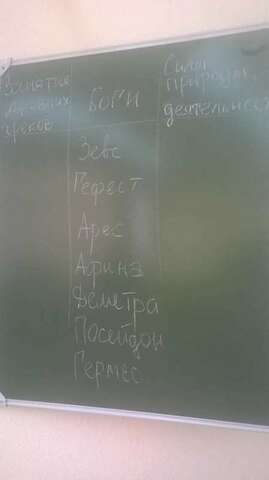 Занятие
древних
греков
Боги
Силы
природы,
деятельность
Зевс
Гефест
Арес
Афина
Деметра
Посейдон
Гермес